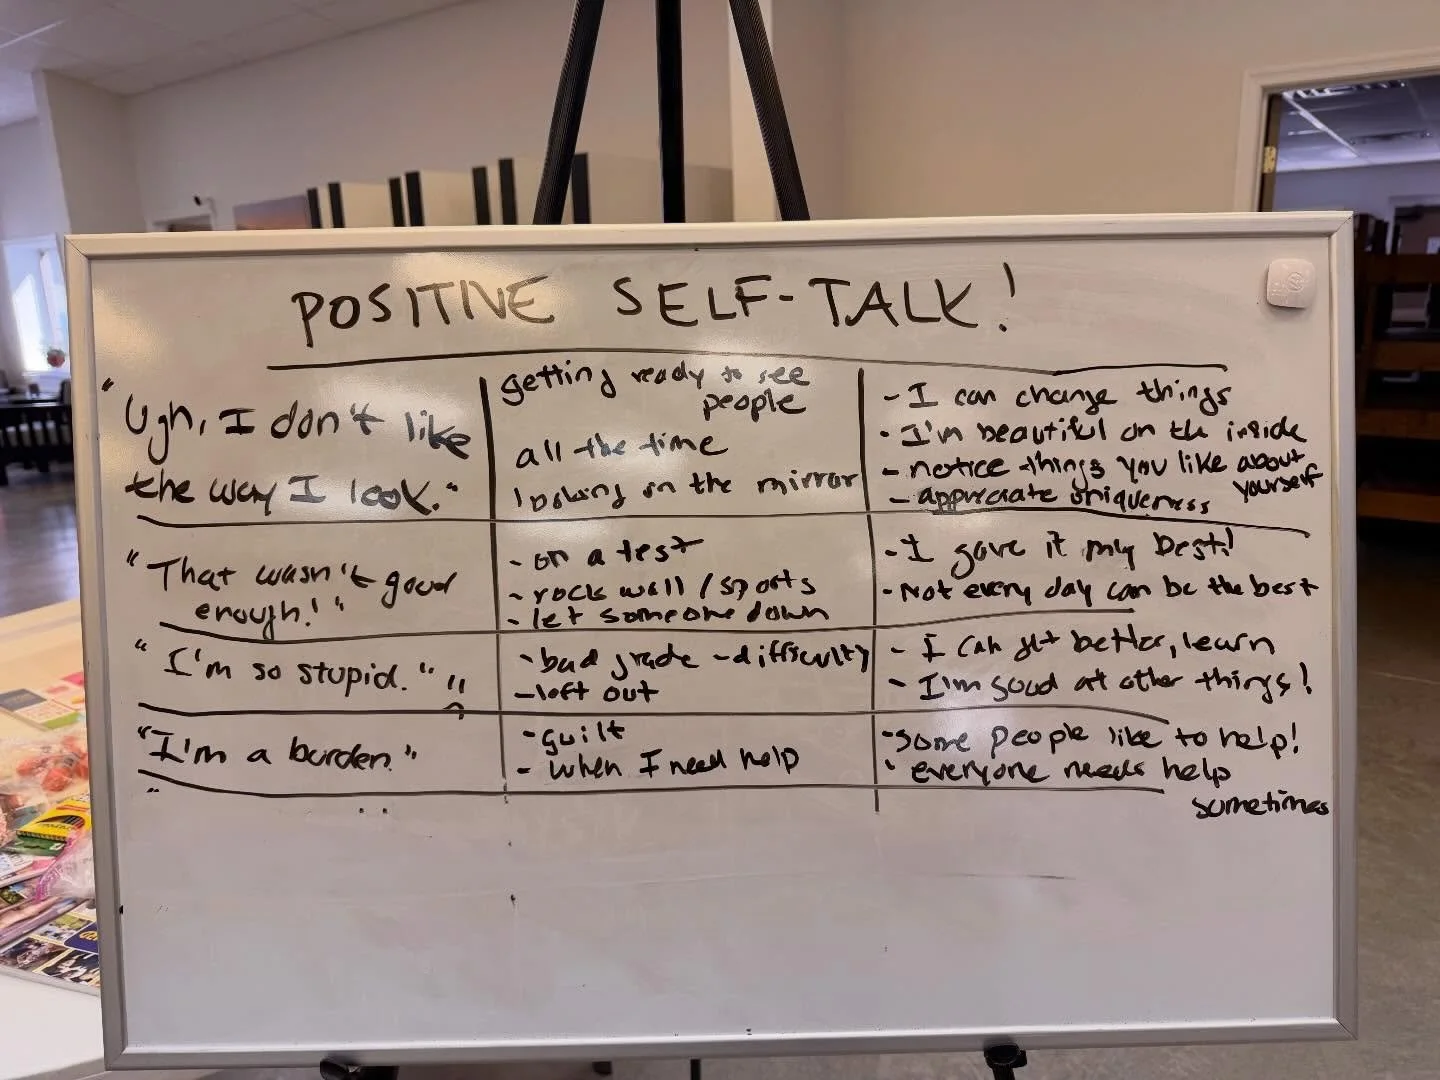 POSITIVE SELF-TALK!
"Ugh, I don't like
the way I look."
getting ready to see
people
all the time
looking in the mirror
- I can change things
- I'm beautiful on the inside
- notice things you like about
yourself
- appreciate uniqueness
"That wasn't good
enough!"
- on a test
- rock wall / sports
- let someone down
- I gave it my best!
- Not every day can be the best
"I'm so stupid."
- bad grade - difficulty
- left out
- I can get better, learn
- I'm good at other things!
"I'm a burden."
- guilt
- when I need help
- some people like to help!
- everyone needs help
sometimes